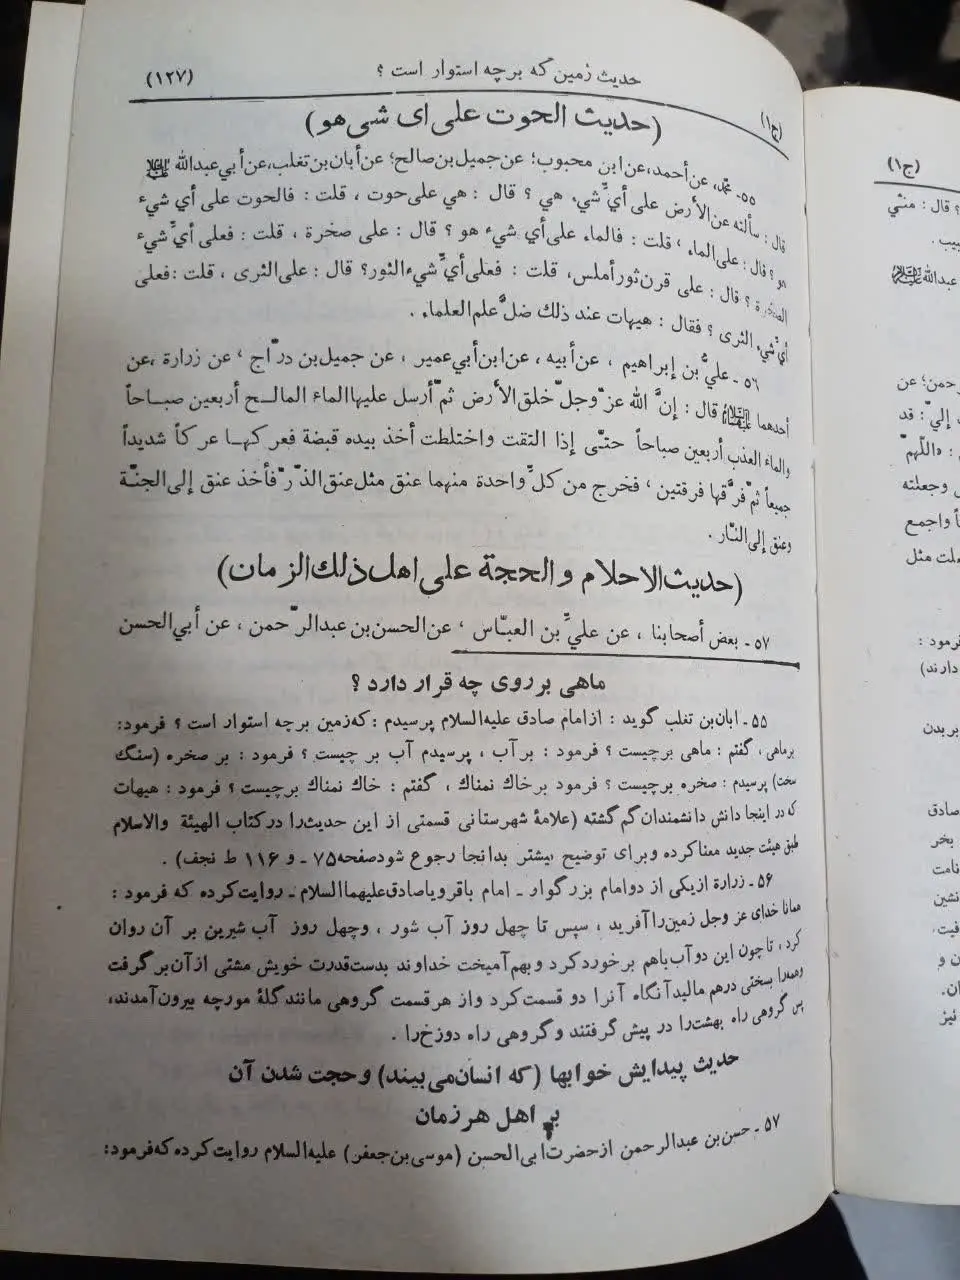 حدیث زمین که برچه استوار است ؟
(۱۲۷)
(ج۱)
(حدیث الحوت علی ای شی هو)
۵۵- محمد، عن أحمد، عن ابن محبوب؛ عن جمیل بن صالح؛ عن أبان بن تغلب، عن أبی عبدالله علیه السلام
قال : سألته عن الأرض علی أيِّ شيء هي ؟ قال : هی علی حوت ، قلت : فالحوت علی أي شيء
هو ؟ قال : علی الماء ، قلت : فالماء علی أي شيء هو ؟ قال : علی صخرة ، قلت : فعلی أيِّ شيء
الصخرة ؟ قال : علی قرن ثور أملس، قلت : فعلی أيِّ شيء الثور؟ قال : علی الثری ، قلت : فعلی
أيِّ شيء الثری ؟ فقال : هیهات عند ذلك ضلَّ علم العلماء .
۵۶ ـ عليُّ بن إبراهیم ، عن أبیه ، عن ابن أبی عمیر ، عن جمیل بن درَّاج ، عن زرارة ، عن
أحدهما علیهما السلام قال : إنَّ الله عزَّ وجلَّ خلق الأرض ثمَّ أرسل علیها الماء المالح أربعین صباحاً
والماء العذب أربعین صباحاً حتَّی إذا التقت واختلطت أخذ بیده قبضة فعرکها عرکاً شدیداً
جمیعاً ثمَّ فرَّقها فرقتین ، فخرج من کلِّ واحدة منهما عنق مثل عنق الذَّرِّ فأخذ عنق إلی الجنَّة
وعنق إلی النَّار .
(حدیث الاحلام والحجة علی اهل ذلك الزمان)
۵۷ ـ بعض أصحابنا ، عن عليِّ بن العبَّاس ، عن الحسن بن عبدالرَّحمن ، عن أبي الحسن
ماهی بر روی چه قرار دارد ؟
۵۵ ـ ابان بن تغلب گوید : از امام صادق علیه السلام پرسیدم : که زمین برچه استوار است ؟ فرمود:
برماهی ، گفتم : ماهی برچیست ؟ فرمود : برآب ، پرسیدم آب بر چیست ؟ فرمود : بر صخره (سنگ
سخت) پرسیدم : صخره برچیست ؟ فرمود برخاك نمناك ، گفتم : خاك نمناك برچیست ؟ فرمود : هیهات
که در اینجا دانش دانشمندان گم گشته (علامهٔ شهرستانی قسمتی از این حدیث را در کتاب الهیئة والاسلام
طبق هیئت جدید معنا کرده و برای توضیح بیشتر بدانجا رجوع شود صفحه ۷۵ ـ و ۱۱۶ ط نجف) .
۵۶ ـ زرارة از یکی از دو امام بزرگوار ـ امام باقر ویا صادق علیهما السلام ـ روایت کرده که فرمود :
همانا خدای عز وجل زمین را آفرید ، سپس تا چهل روز آب شور ، و چهل روز آب شیرین بر آن روان
کرد ، تا چون این دو آب باهم برخورد کرد و بهم آمیخت خداوند بدست قدرت خویش مشتی از آن برگرفت
و همه را بسختی درهم مالید آنگاه آنرا دو قسمت کرد و از هر قسمت گروهی مانند گلهٔ مورچه بیرون آمدند،
پس گروهی راه بهشت را در پیش گرفتند و گروهی راه دوزخ را .
حدیث پیدایش خوابها (که انسان می بیند) و حجت شدن آن
بر اهل هر زمان
۵۷ ـ حسن بن عبدالرحمن از حضرت ابی الحسن (موسی بن جعفر) علیه السلام روایت کرده که فرمود:
(ج۱)
؟ قال : منّي
عبدالله علیه السلام
رحمن؛ عن
إليَّ : قد
: «اللّهمَّ
وجعلته
واجمع
مثل
فرمود :
دارند)
بریدن
صادق
بخر
ن و
ان.
نیز